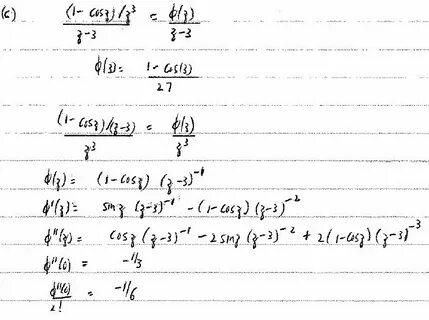 (c) (1-cosz)/z³ / z-3 = φ(z) / z-3
φ(3) = 1-cos(3) / 27
(1-cosz)/(z-3) / z³ = φ(z) / z³
φ(z) = (1-cosz) (z-3)⁻¹
φ'(z) = sinz (z-3)⁻¹ - (1-cosz) (z-3)⁻²
φ''(z) = cosz (z-3)⁻¹ - 2sinz (z-3)⁻² + 2(1-cosz) (z-3)⁻³
φ''(0) = -1/3
φ''(0) / 2! = -1/6